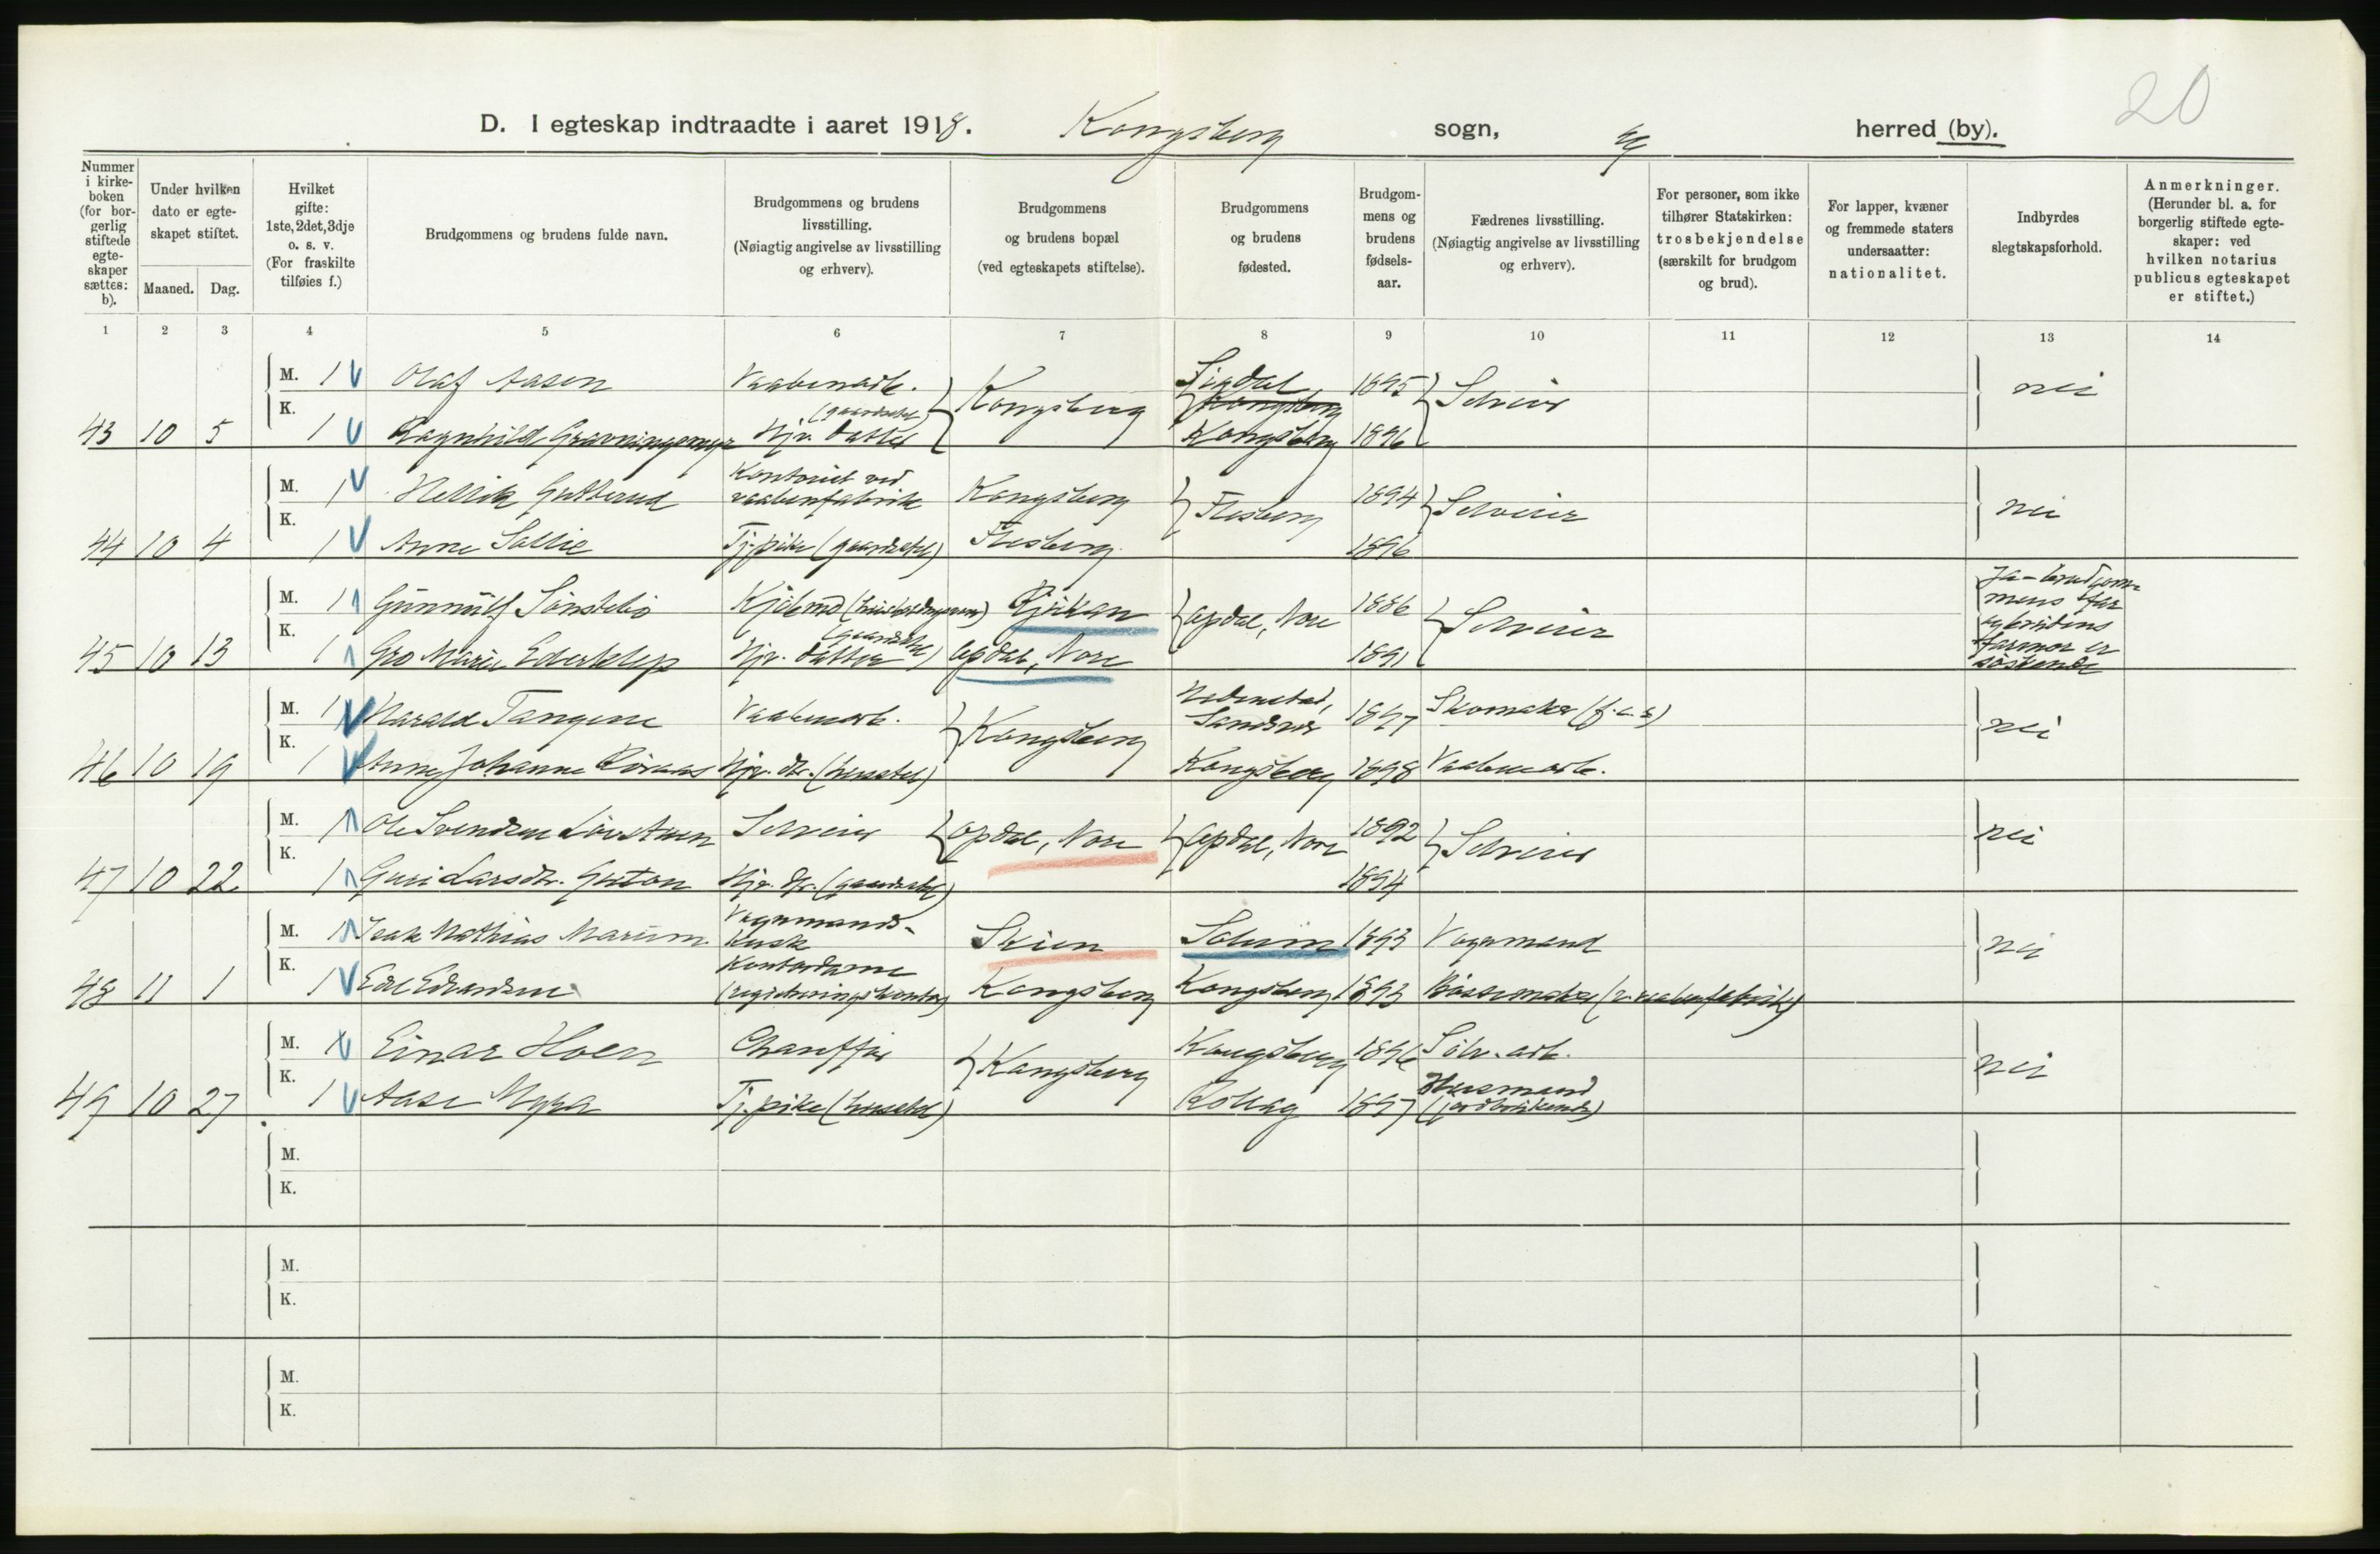 20
D. I egteskap indtraadte i aaret 1918. Kongsberg sogn, herred (by).
Nummer i kirke-boken (for bor-gerlig stiftede egte-skaper sættes: b).
Under hvilken dato er egte-skapet stiftet.
Maaned. Dag.
Hvilket gifte: 1ste, 2det, 3dje o. s. v. (For fraskilte tilføies f.)
Brudgommens og brudens fulde navn.
Brudgommens og brudens livsstilling. (Nøiagtig angivelse av livsstilling og erhverv).
Brudgommens og brudens bopæl (ved egteskapets stiftelse).
Brudgommens og brudens fødested.
Brudgom-mens og brudens fødsels-aar.
Fædrenes livsstilling. (Nøiagtig angivelse av livsstilling og erhverv).
For personer, som ikke tilhører Statskirken: trosbekjendelse (særskilt for brudgom og brud).
For lapper, kvæner og fremmede staters undersaatter: nationalitet.
Indbyrdes slegtskapsforhold.
Anmerkninger. (Herunder bl. a. for borgerlig stiftede egte-skaper: ved hvilken notarius publicus egteskapet er stiftet.)
1 2 3 4 5 6 7 8 9 10 11 12 13 14
M. 1 Olaf Aasen Vaabenarb. Kongsberg Sigdal Kongsberg 1895 Selveier nei
43 10 5 K. 1 Ragnhild Hjv. datter (gaardstel) Kongsberg 1896
M. 1 Helleik Gutterud Kontorist ved vaabenfabrik Kongsberg Flesberg 1894 Selveier nei
44 10 4 K. 1 Anne Tj.pike (gaardstel) Flesberg 1896
M. 1 Gunnulf Sønstebø Kjøbmd Rjukan Opdal, Nore 1886 Selveier Ja - brudgommens far og brudens farmor er søskende
45 10 13 K. 1 Gro Marie Hjv. datter (gaardstel) Opdal, Nore 1891
M. 1 Harald Tangene Vaabenarb. Kongsberg Hedenstad, Sandsvær 1897 Skomaker nei
46 10 19 K. 1 Anna Johanne Hjv. dtr. (husstel) Kongsberg 1898 Vaabenarb.
M. 1 Ole Svendsen Selveier Opdal, Nore Opdal, Nore 1892 Selveier nei
47 10 22 K. 1 Guri Larsdtr. Hjv. dtr. (gaardstel) 1894
M. 1 Isak Mathias Marum Vognmands-kusk Skien Solum 1893 Vognmand nei
48 11 1 K. 1 Edel Edvardsen Kontordame (registreringskontor) Kongsberg Kongsberg 1893 Bøssemaker (v. vaabenfabrik)
M. 1 Einar Hoen Chauffør Kongsberg Kongsberg 1896 Sølv. arb. nei
49 10 27 K. 1 Aase Myra Tj.pike (husstel) Rollag 1897 Husmand
M.
K.
M.
K.
M.
K.